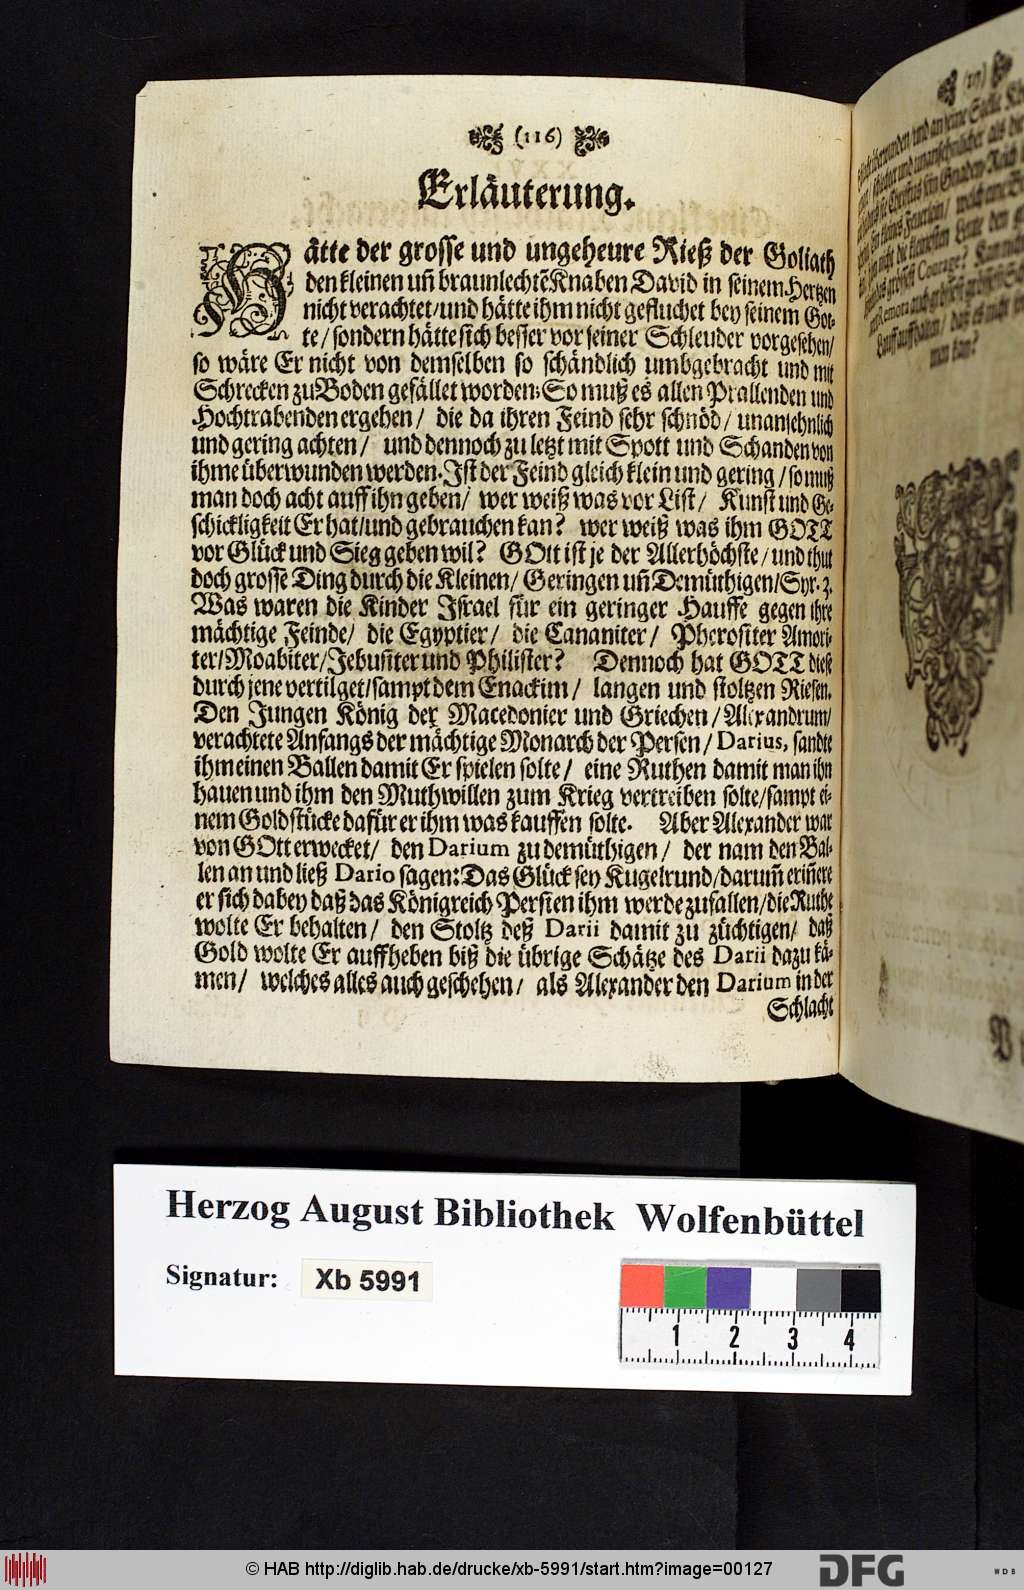 (116)
Erläuterung.
Hätte der grosse und ungeheure Rieß der Goliath
den kleinen uñ braunlechtẽ Knaben David in seinem Hertzen
nicht verachtet/und hätte ihm nicht gefluchet bey seinem Got-
te/sondern hätte sich besser vor seiner Schleuder vorgesehen/
so wäre Er nicht von demselben so schändlich umbgebracht und mit
Schrecken zu Boden gefället worden: So muß es allen Prallenden und
Hochtrabenden ergehen/ die da ihren Feind sehr schnöd/ unansehnlich
und gering achten/ und dennoch zu letzt mit Spott und Schanden von
ihme überwunden werden. Ist der Feind gleich klein und gering/so muß
man doch acht auff ihn geben/ wer weiß was vor List/ Kunst und Ge-
schickligkeit Er hat/und gebrauchen kan? wer weiß was ihm GOTT
vor Glück und Sieg geben wil? GOtt ist je der Allerhöchste/und thut
doch grosse Ding durch die Kleinen/ Geringen uñ Demüthigen/Syr. 3.
Was waren die Kinder Israel für ein geringer Hauffe gegen ihre
mächtige Feinde/ die Egyptier/ die Cananiter/ Pherositer Amori-
ter/Moabiter/Jebusiter und Philister? Dennoch hat GOTT diese
durch jene vertilget/sampt dem Enackim/ langen und stoltzen Riesen.
Den Jungen König der Macedonier und Griechen/Alexandrum/
verachtete Anfangs der mächtige Monarch der Persen/Darius, sandte
ihm einen Ballen damit Er spielen solte/ eine Ruthen damit man ihn
hauen und ihm den Muthwillen zum Krieg vertreiben solte/sampt ei-
nem Goldstücke dafür er ihm was kauffen solte. Aber Alexander war
von GOtt erwecket/ den Darium zu demüthigen/ der nam den Bal-
len an und ließ Dario sagen: Das Glück sey Kugelrund/darum̃ eriñere
er sich dabey daß das Königreich Persien ihm werde zufallen/die Ruthe
wolte Er behalten/ den Stoltz deß Darii damit zu züchtigen/ daß
Gold wolte Er auffheben biß die übrige Schätze des Darii dazu kä-
men/ welches alles auch geschehen/ als Alexander den Darium in der
Schlacht
(117)
Courage?
man kan?
Herzog August Bibliothek Wolfenbüttel
Signatur: Xb 5991
1 2 3 4
© HAB http://diglib.hab.de/drucke/xb-5991/start.htm?image=00127
DFG
WDB